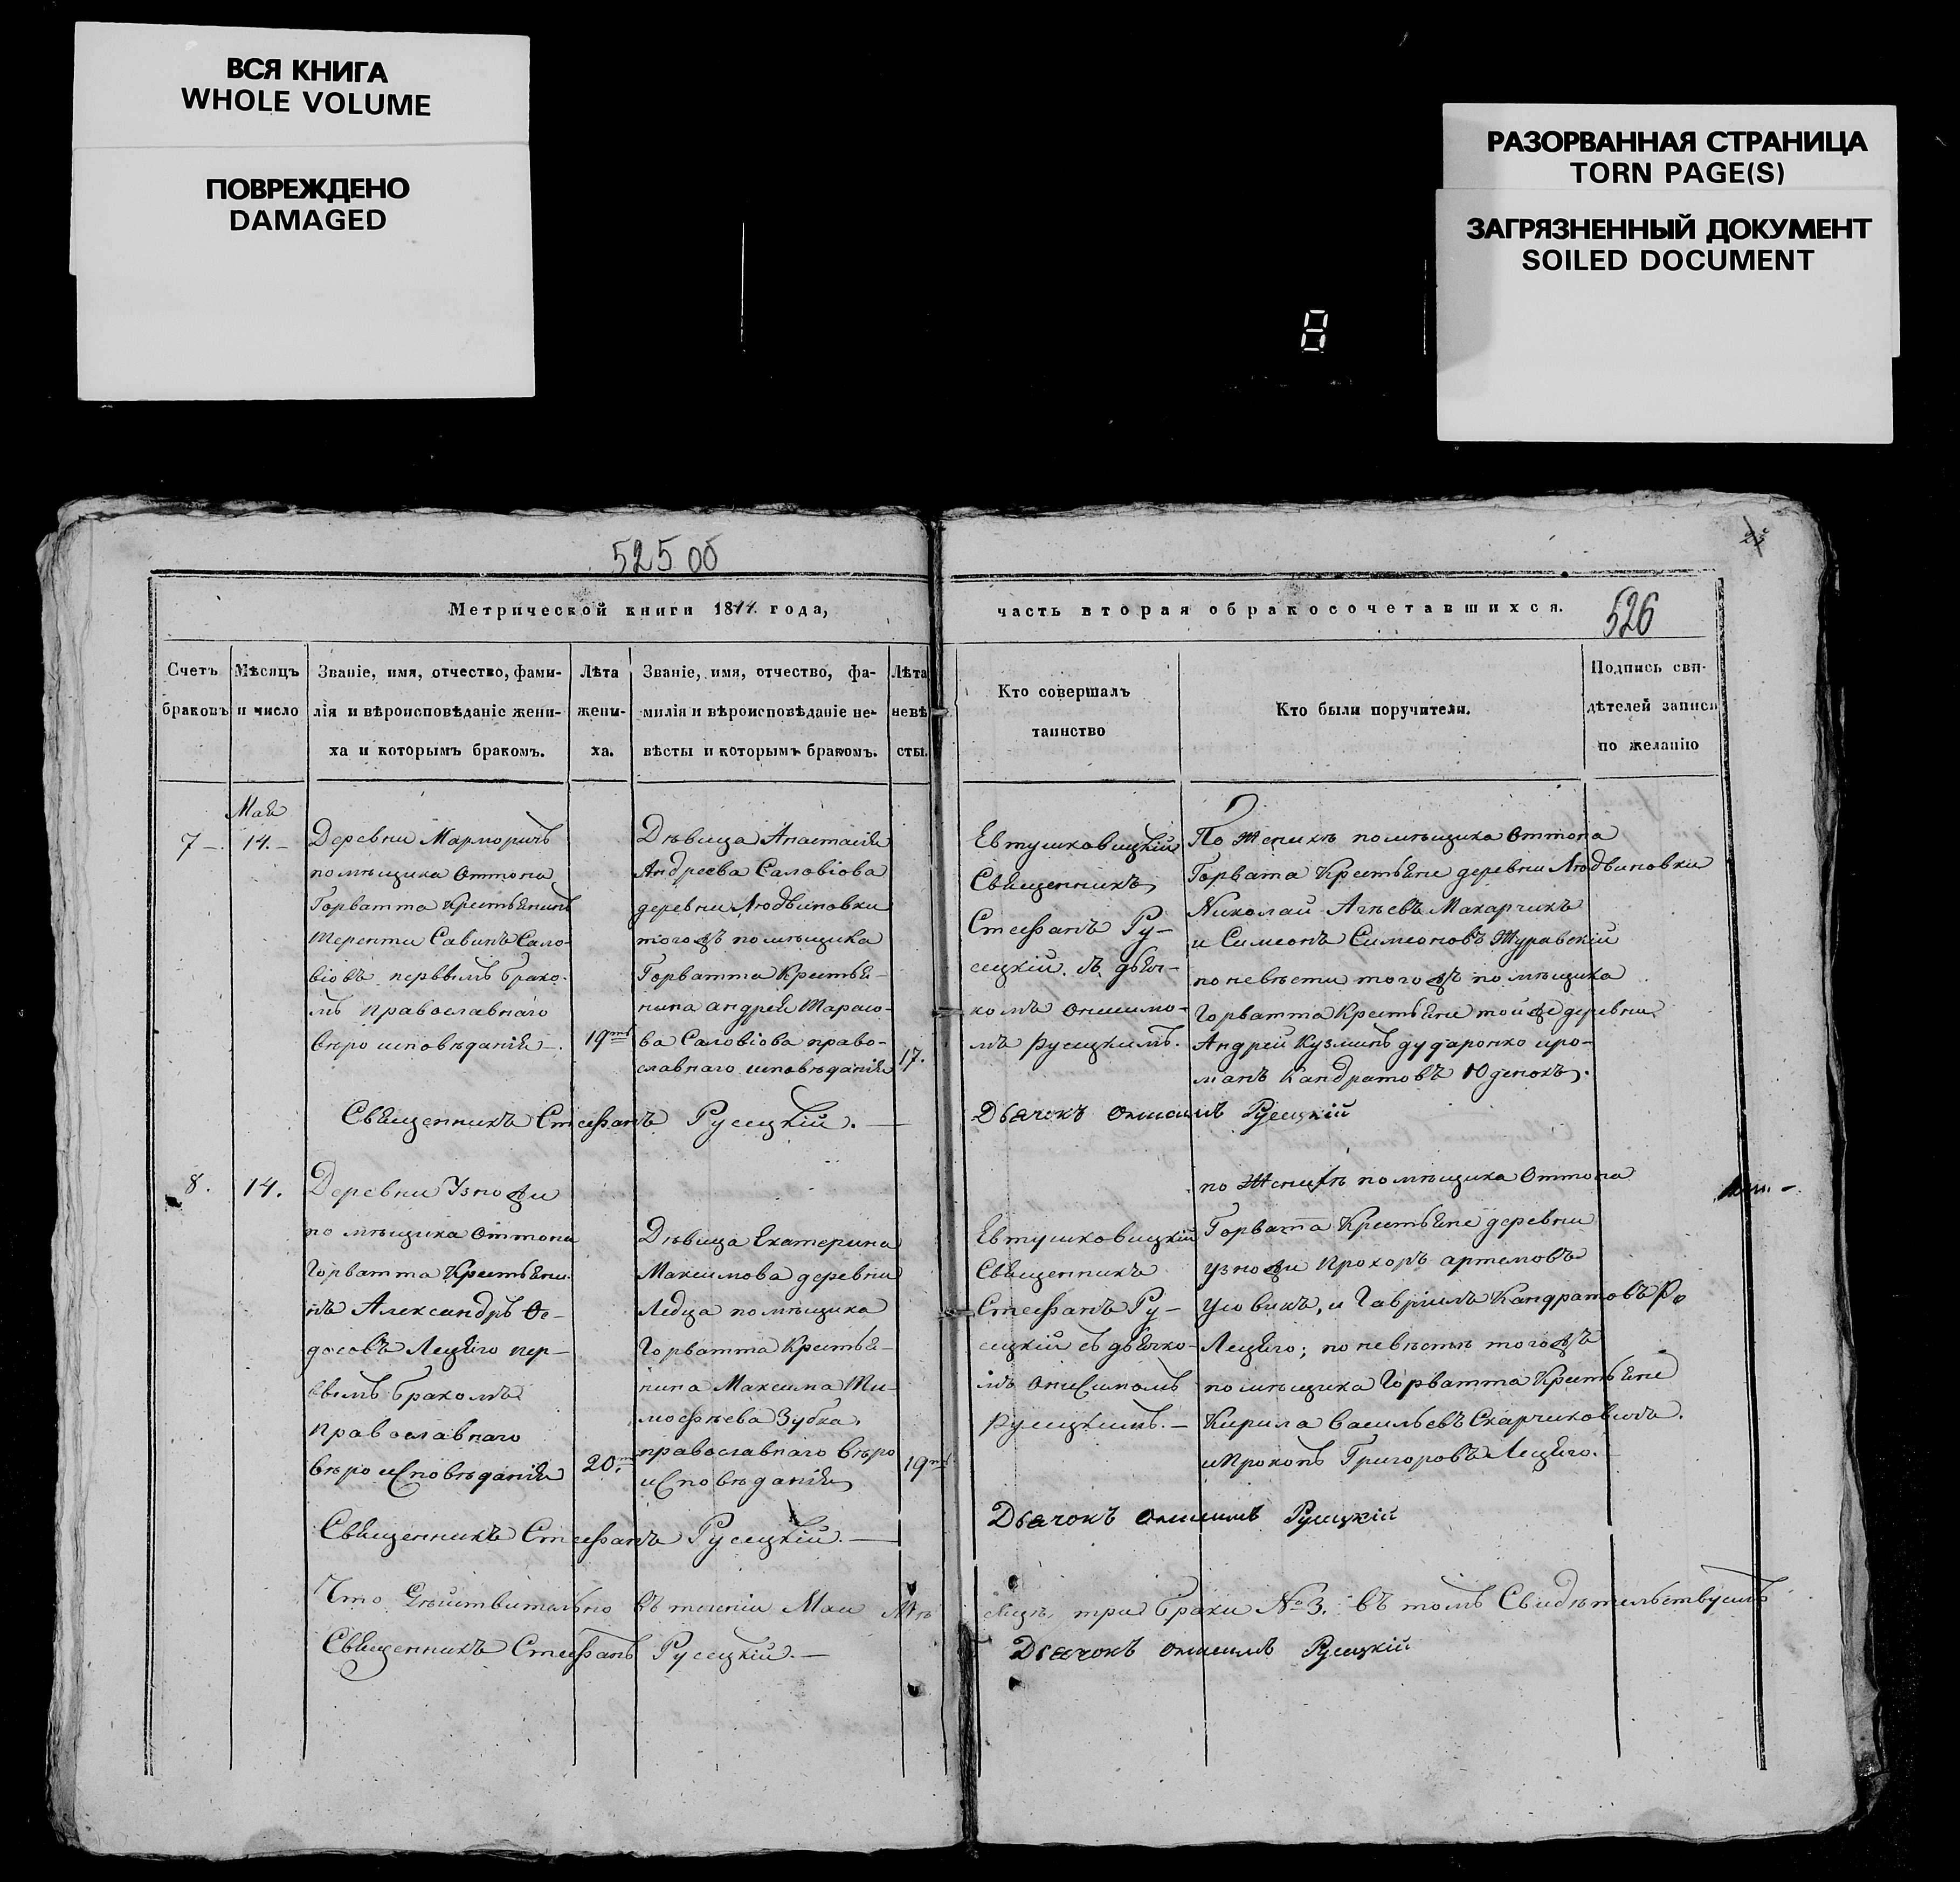 ВСЯ КНИГА
WHOLE VOLUME
ПОВРЕЖДЕНО
DAMAGED
РАЗОРВАННАЯ СТРАНИЦА
TORN PAGE(S)
ЗАГРЯЗНЕННЫЙ ДОКУМЕНТ
SOILED DOCUMENT
8
525 об
Метрической книги 1844. года,
Счетъ
браковъ
Мѣсяцъ
и число
Званіе, имя, отчество, фами-
лія и вѣроисповѣданіе жени-
ха и которымъ бракомъ.
Лѣта
жени-
ха.
Званіе, имя, отчество, фа-
милія и вѣроисповѣданіе не-
вѣсты и которымъ бракомъ.
Лѣта
невѣ
сты.
часть вторая о бракосочетавшихся.
526
Кто совершалъ
таинство
Кто были поручители.
Подпись сви-
дѣтелей записи
по желанію
Мая
7 —. 14. —
Деревни Марморичъ
помѣщика Оттона
Горватта Крестьянинъ
Терентій Савинъ Сало-
віовъ первымъ брако-
мъ православнаго
вѣроисповѣданія —.
19тъ
Дѣвица Анастасія
Андреева Саловіова
деревни Людвиновки
тогожъ помѣщика
Горватта Крестья-
нина Андрея Тарасо-
ва Саловіова право-
славнаго исповѣданія
17.
Евтушковицкій
Священникъ
Стефанъ Ру-
сецкій. съ дьяч-
комъ Онисимо-
мъ Русецкимъ.
По Женихѣ помѣщика Оттона
Горвата Крестьяне деревни Людвиновки
Николай Агѣевъ Макарчикъ
и Симеонъ Симеоновъ Журавскій
по невѣсти тогожъ помѣщика
Горватта Крестьяне тойже деревни
Андрей Кузминъ Дударонко иро-
манъ Кандратовъ Юденокъ.
Священникъ Стефанъ Русецкій. —
Дьячокъ Онисимъ Русецкій
8. 14.
Деревни Узножи
помѣщика Оттона
Горватта Крестьяни-
нъ Александръ Фе-
досовъ Лецяго пер-
вымъ бракомъ
православнаго
вѣроисповѣданія
20.тъ
Дѣвица Екатерина
Максимова деревни
Ледца помѣщика
Горватта Крестья-
нина Максима Ти-
мофѣева Зубка,
православнаго вѣро
исповѣданія
19тъ
Евтушковицкій
Священникъ
Стефанъ Ру-
сецкій съ дьячко-
мъ Онисимомъ
Русецкимъ. —
по Женихѣ помѣщика Оттона
Горвата Крестьяне деревни
узножи Прохоръ артемовъ
Усовикъ, и Гавріилъ Кандратовъ
Лецяго; по невѣстѣ тогожъ
помѣщика Горватта Крестьяне
Кирила Васильевъ Скарчиковичъ.
и Прокопъ Григоровъ Лецяго.
Священникъ Стефанъ Русецкій. —
Дьячокъ Онисимъ Русецкій
Что дѣйствительно въ теченіи Маи
три браки №3. въ томъ Свидѣтельствуемъ
Священникъ Стефанъ Русецкій. —
Дьячокъ Онисимъ Русецкій